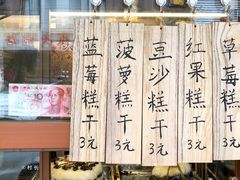 蓝莓糕干3元
菠萝糕干3元
豆沙糕干3元
红果糕干3元
草莓糕干3元